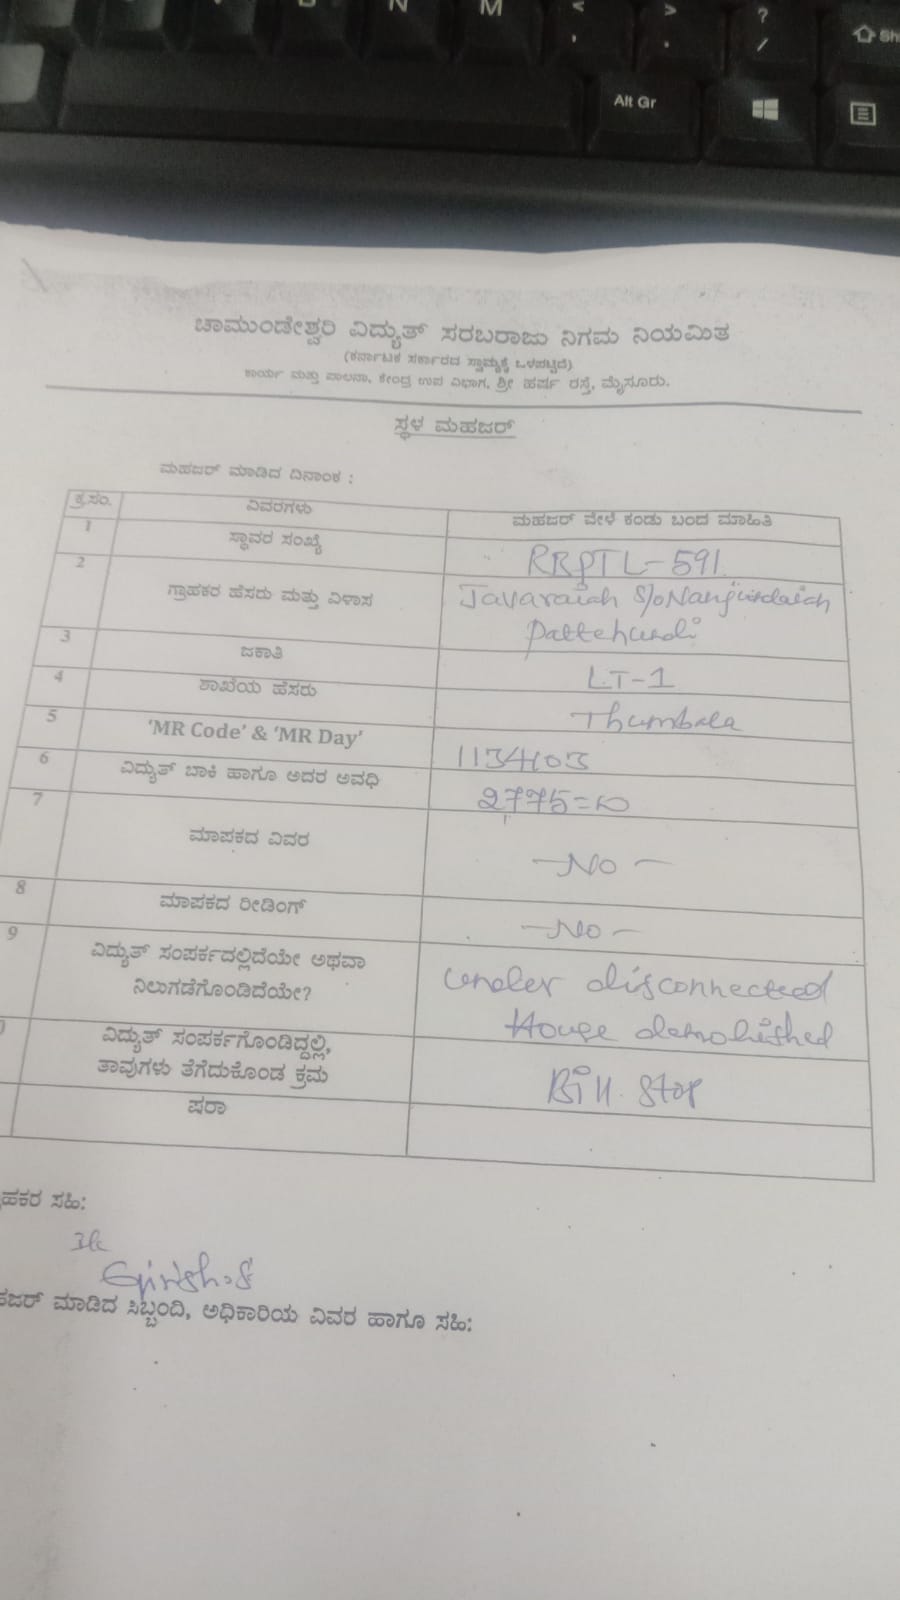 N M < , > . ? / Sh
Alt Gr
ಚಾಮುಂಡೇಶ್ವರಿ ವಿದ್ಯುತ್ ಸರಬರಾಜು ನಿಗಮ ನಿಯಮಿತ
(ಕರ್ನಾಟಕ ಸರ್ಕಾರದ ಸ್ವಾಮ್ಯಕ್ಕೆ ಒಳಪಟ್ಟಿದೆ)
ಕಾರ್ಯ ಮತ್ತು ಪಾಲನಾ, ಕೇಂದ್ರ ಉಪ ವಿಭಾಗ, ಶ್ರೀ ಹರ್ಷ ರಸ್ತೆ, ಮೈಸೂರು.
ಸ್ಥಳ ಮಹಜರ್
ಮಹಜರ್ ಮಾಡಿದ ದಿನಾಂಕ :
ಕ್ರ.ಸಂ. ವಿವರಗಳು ಮಹಜರ್ ವೇಳೆ ಕಂಡು ಬಂದ ಮಾಹಿತಿ
1 ಸ್ಥಾವರ ಸಂಖ್ಯೆ RRPTL-591
2 ಗ್ರಾಹಕರ ಹೆಸರು ಮತ್ತು ವಿಳಾಸ Javaraiah S/o
3 ಜಕಾತಿ LT-1
4 ಶಾಖೆಯ ಹೆಸರು Thumbala
5 'MR Code' & 'MR Day' 
6 ವಿದ್ಯುತ್ ಬಾಕಿ ಹಾಗೂ ಅದರ ಅವಧಿ 2775=00
7 ಮಾಪಕದ ವಿವರ —No—
8 ಮಾಪಕದ ರೀಡಿಂಗ್ —No—
9 ವಿದ್ಯುತ್ ಸಂಪರ್ಕದಲ್ಲಿದೆಯೇ ಅಥವಾ under disconnected
ನಿಲುಗಡೆಗೊಂಡಿದೆಯೇ? House demolished
ವಿದ್ಯುತ್ ಸಂಪರ್ಕಗೊಂಡಿದ್ದಲ್ಲಿ, Bill. Stop
ತಾವುಗಳು ತೆಗೆದುಕೊಂಡ ಕ್ರಮ
ಷರಾ
ಹಕರ ಸಹಿ:
Girish.S
ಹಜರ್ ಮಾಡಿದ ಸಿಬ್ಬಂದಿ, ಅಧಿಕಾರಿಯ ವಿವರ ಹಾಗೂ ಸಹಿ: